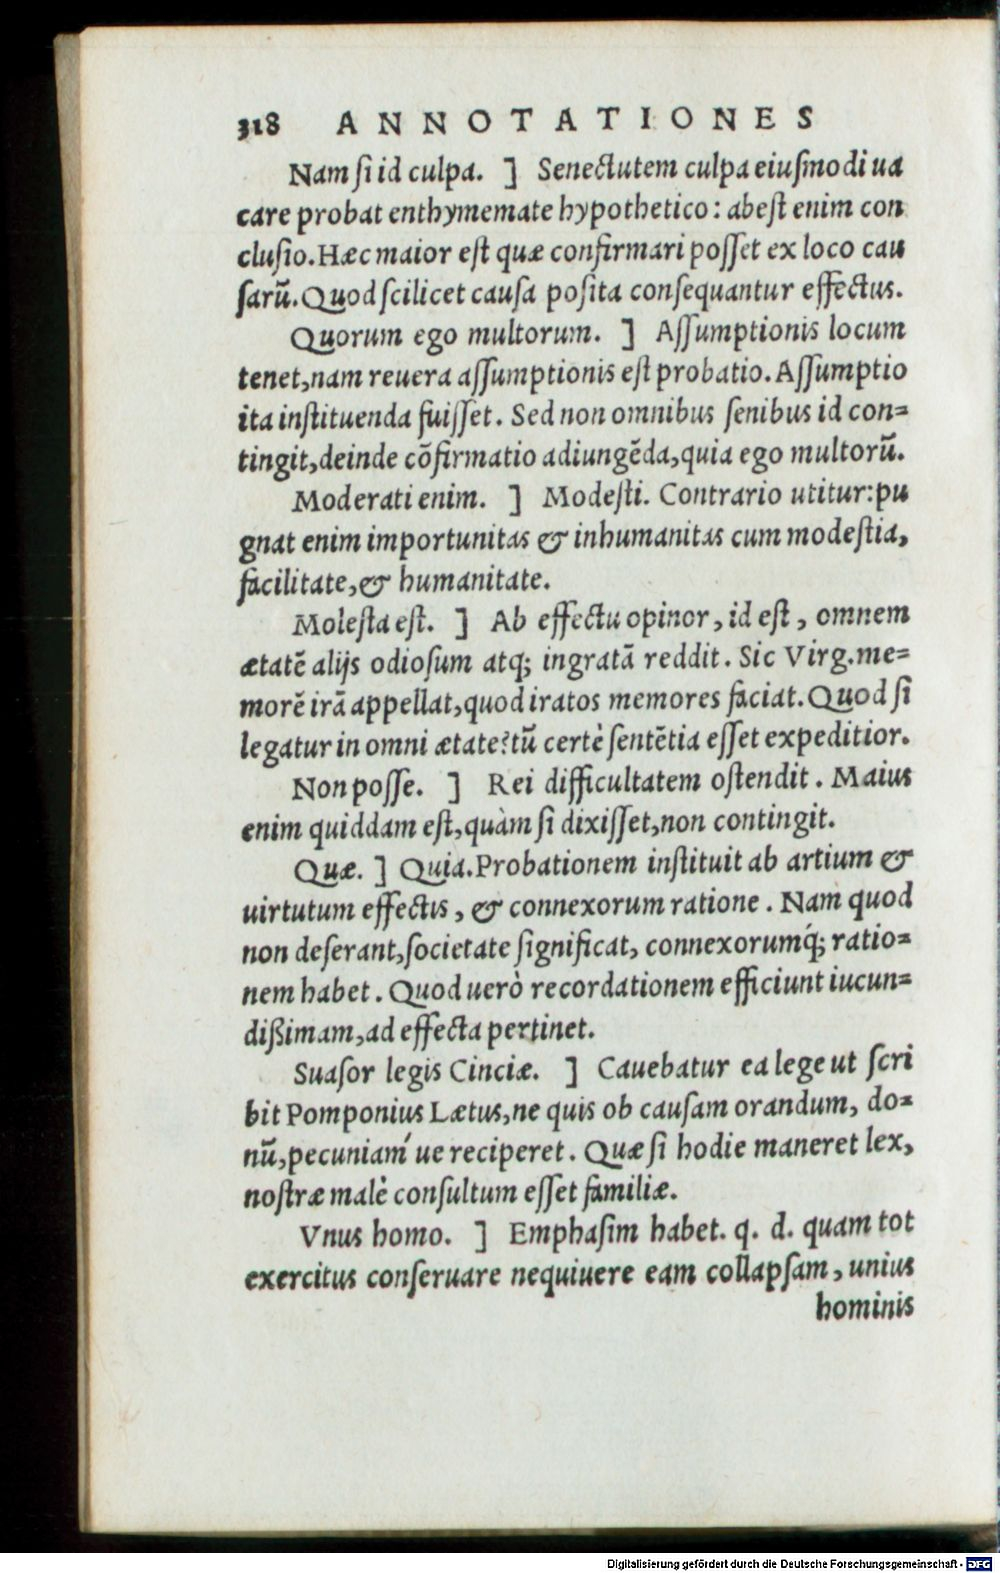 318 ANNOTATIONES
Nam ſi id culpa. ] Senectutem culpa eiuſmodi ua
care probat enthymemate hypothetico: abeſt enim con
cluſio. Hæc maior eſt quæ confirmari poſſet ex loco cau
ſarũ. Quod ſcilicet cauſa poſita conſequantur effectus.
Quorum ego multorum. ] Aſſumptionis locum
tenet, nam reuera aſſumptionis eſt probatio. Aſſumptio
ita inſtituenda fuiſſet. Sed non omnibus ſenibus id con=
tingit, deinde cõfirmatio adiungẽda, quia ego multorũ.
Moderati enim. ] Modeſti. Contrario utitur: pu
gnat enim importunitas & inhumanitas cum modeſtia,
facilitate, & humanitate.
Moleſta eſt. ] Ab effectu opinor, id eſt, omnem
ætatẽ alijs odioſum atq; ingratã reddit. Sic Virg. me=
morẽ irã appellat, quod iratos memores faciat. Quod ſi
legatur in omni ætate? tũ certè ſentẽtia eſſet expeditior.
Non poſſe. ] Rei difficultatem oſtendit. Maius
enim quiddam eſt, quàm ſi dixiſſet, non contingit.
Quæ. ] Quia. Probationem inſtituit ab artium &
uirtutum effectis, & connexorum ratione. Nam quod
non deſerant, ſocietate ſignificat, connexorumq́; ratio=
nem habet. Quod uerò recordationem efficiunt iucun=
dißimam, ad effecta pertinet.
Suaſor legis Cinciæ. ] Cauebatur ea lege ut ſcri
bit Pomponius Lætus, ne quis ob cauſam orandum, do=
nũ, pecuniaḿ ue reciperet. Quæ ſi hodie maneret lex,
noſtræ malè conſultum eſſet familiæ.
Vnus homo. ] Emphaſim habet. q. d. quam tot
exercitus conſeruare nequiuere eam collapſam, unius
hominis
Digitalisierung gefördert durch die Deutsche Forschungsgemeinschaft - DFG